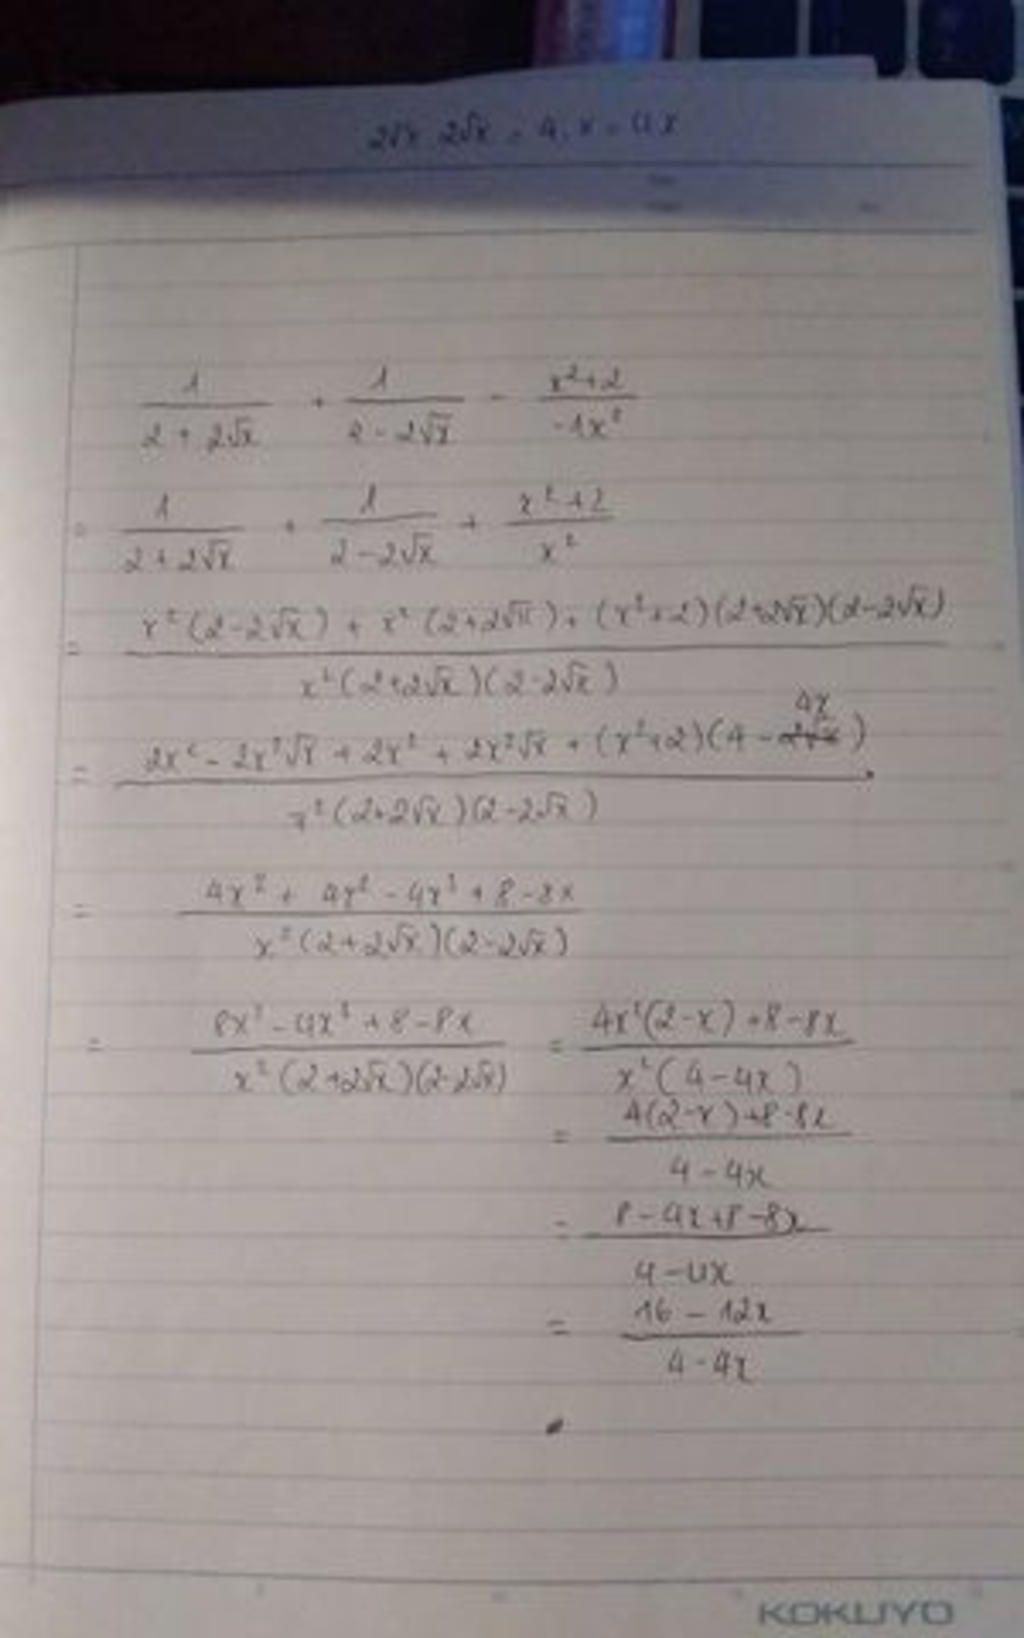 2√x 2√x = 4.x = 4x
1/(2 + 2√x) + 1/(2 - 2√x) - (x²+2)/(-1x²)
= 1/(2+2√x) + 1/(2-2√x) + (x²+2)/x²
= (x²(2-2√x) + x²(2+2√x) + (x²+2)(2+2√x)(2-2√x))/(x²(2+2√x)(2-2√x))
= (2x² - 2x²√x + 2x² + 2x²√x + (x²+2)(4 - 4x))/(x²(2+2√x)(2-2√x))
= (4x² + 4x² - 4x³ + 8 - 8x)/(x²(2+2√x)(2-2√x))
= (8x² - 4x³ + 8 - 8x)/(x²(2+2√x)(2-2√x)) = (4x²(2-x) + 8 - 8x)/(x²(4-4x))
= (4(2-x) + 8 - 8x)/(4-4x)
= (8 - 4x + 8 - 8x)/(4-4x)
= (16 - 12x)/(4-4x)
KOKUYO